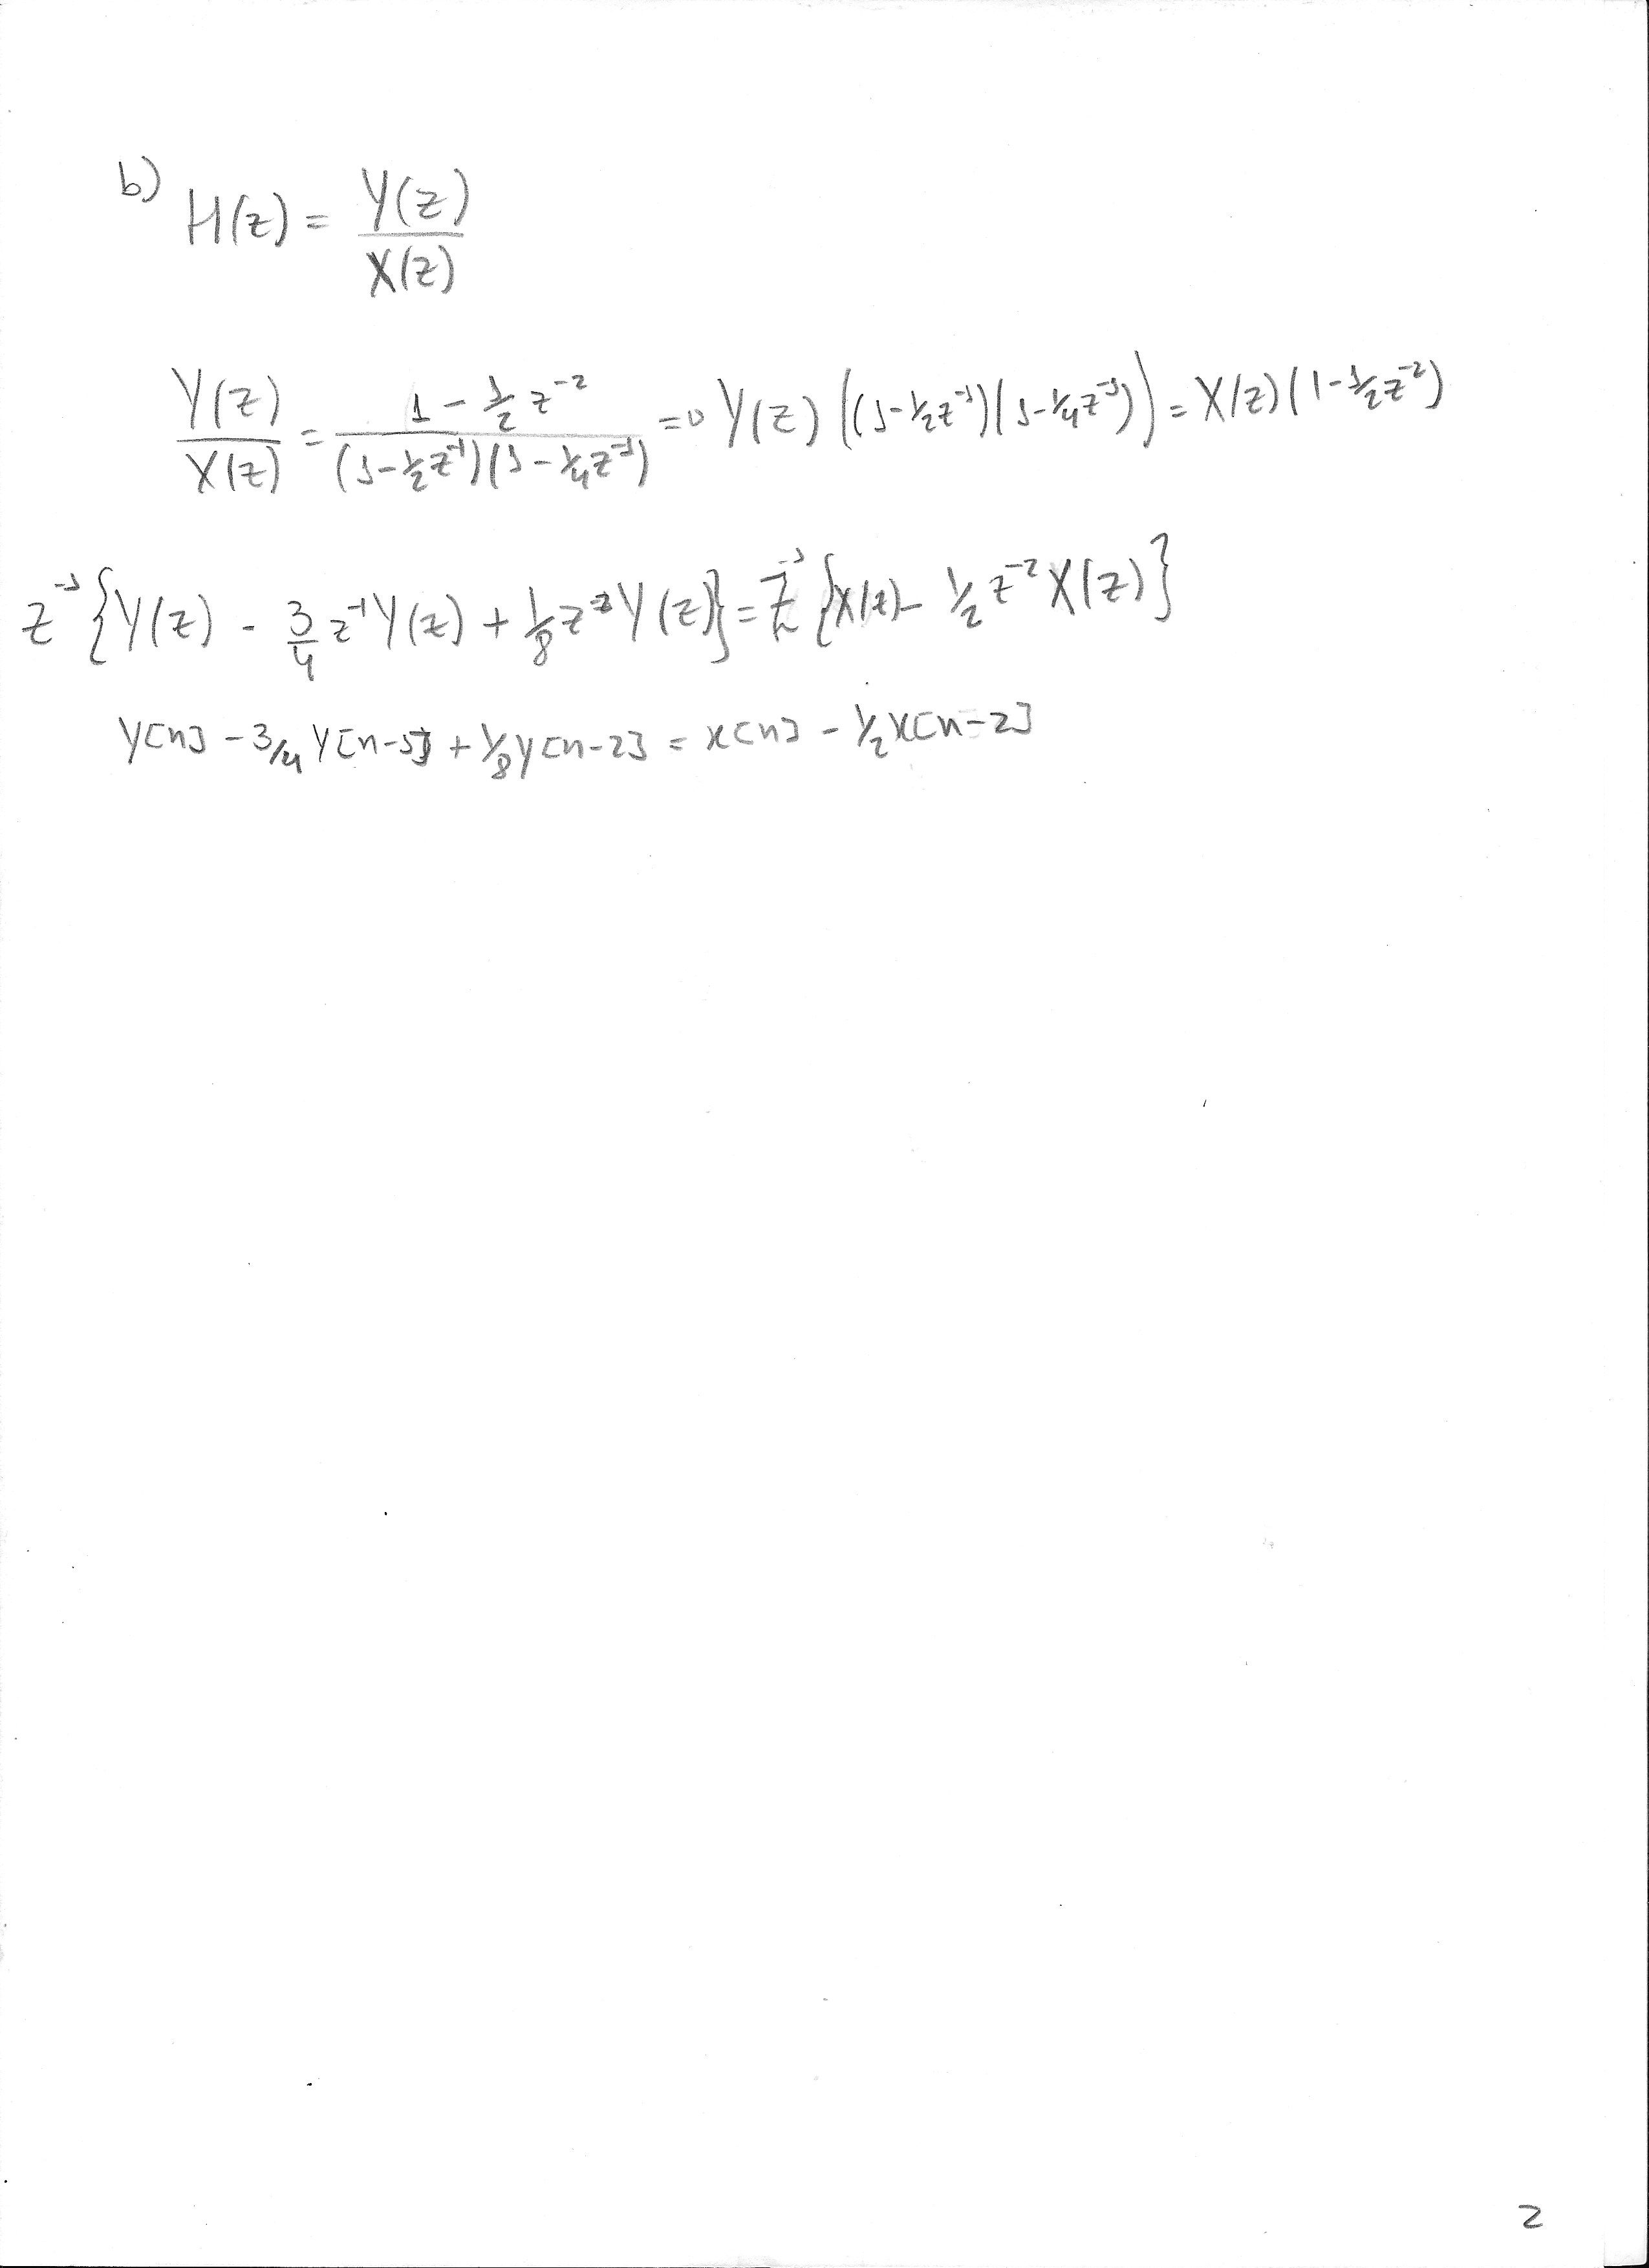 b) H(z) = Y(z)/X(z)
Y(z)/X(z) = (1 - 1/2 z^-2)/((1 - 1/2 z^-1)(1 - 1/4 z^-1)) => Y(z) ((1 - 1/2 z^-1)(1 - 1/4 z^-1)) = X(z)(1 - 1/2 z^-2)
Z^-1 {Y(z) - 3/4 z^-1 Y(z) + 1/8 z^-2 Y(z)} = Z^-1 {X(z) - 1/2 z^-2 X(z)}
y[n] - 3/4 y[n-1] + 1/8 y[n-2] = x[n] - 1/2 x[n-2]
2